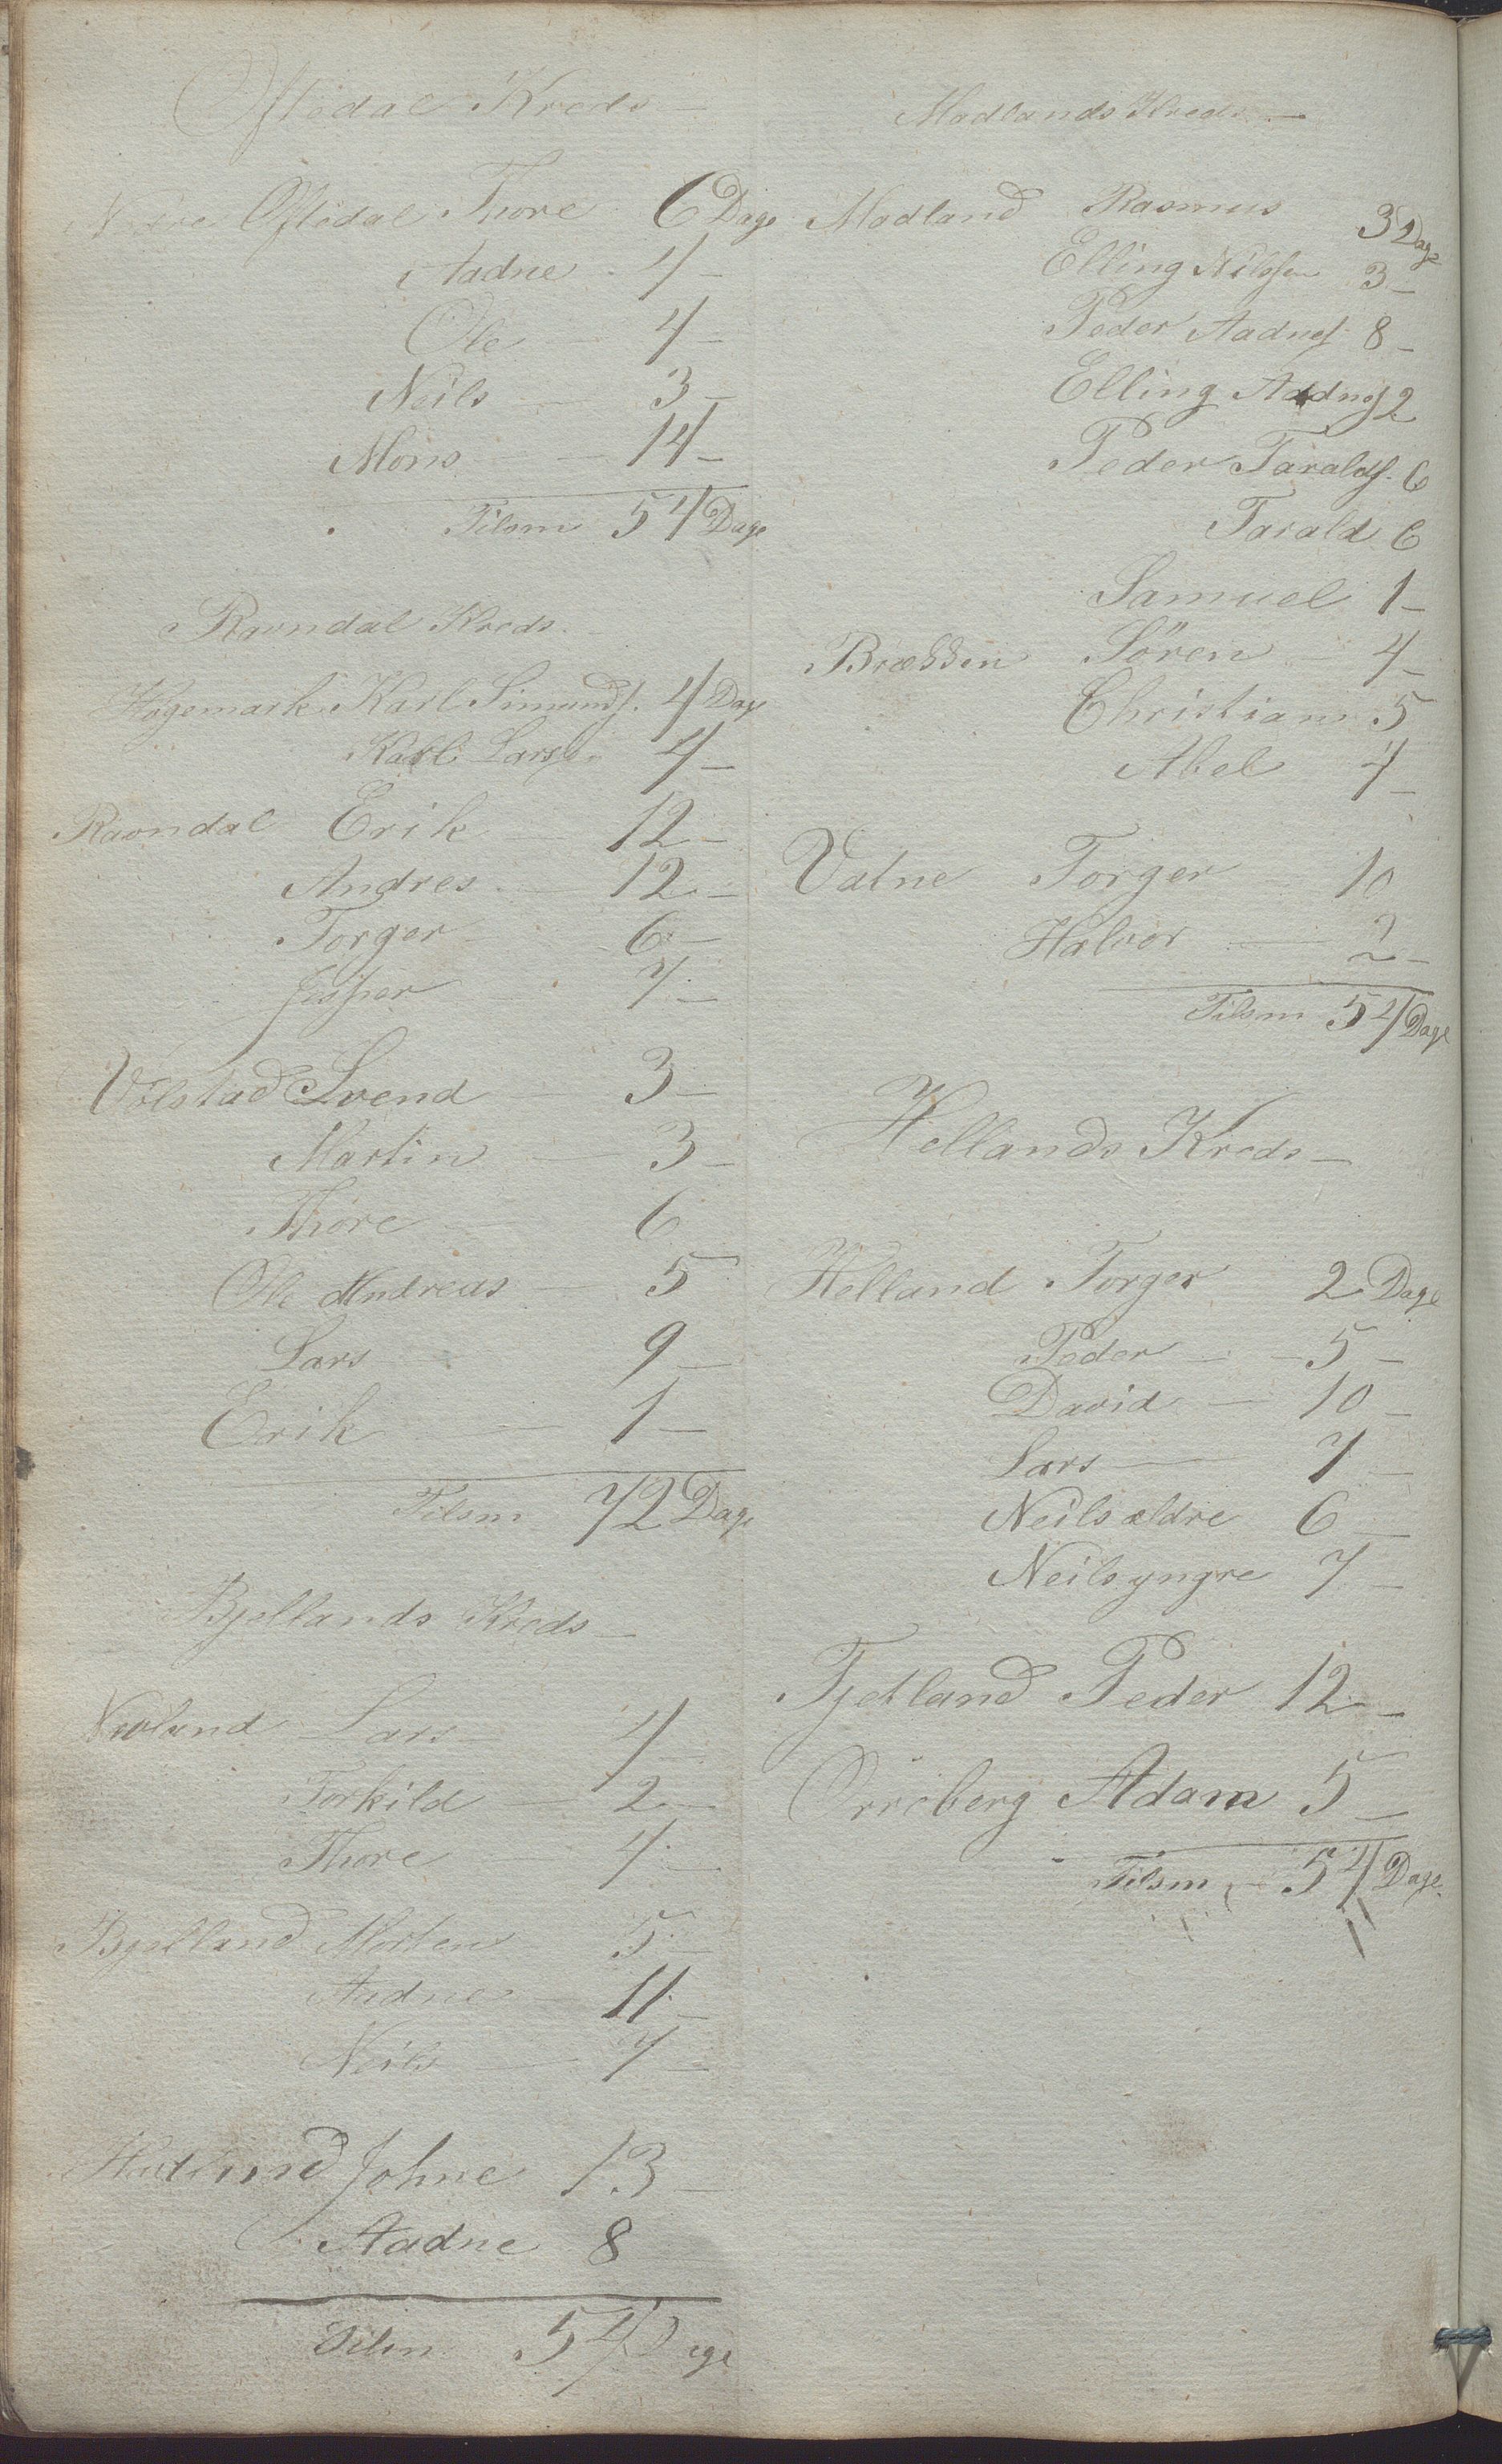 Øflødal Kreds –
Nedre Øflødal Thore 6 Dage
Aadne 4 –
Ole 4 –
Neils – 3 –
Mons – – 14 –
Tilsm 54 Dage
Ravndal Kreds.
Høgemark Karl Simunds. 4 Dage
Karl Larss. 4 –
Ravndal Erik – 12 –
Andres – 12 –
Torger 6 –
Jesper 7 –
Vølstad Svend – 3 –
Martin – 3 –
Thore – 6
Ole Andreas – 5
Lars – 9 –
Erik – 1 –
Tilsm 72 Dage
Bjellands Kreds –
Nevland Lars 4 –
Torkild – 2 –
Thore – 4 –
Bjelland Morten 5 –
Aadne – 11 –
Neils – 7 –
Hetland Johne 13 –
Aadne 8
Tilsm 54 Dage
Madlands Kreds –
Madland Rasmus 3 Dage
Elling Nilssen 3 –
Peder Aadnes. 8 –
Elling Aadns. 2
Peder Taralds. 6
Tarald 6
Samuel 1 –
Brækken Søren 4 –
Christian 5
Abel 4 –
Vatne Torger 10
Halvor – 2 –
Tilsm 54 Dage
Hellands Kreds –
Helland Torger 2 Dage
Peder – – 5 –
David – 10 –
Lars – 7 –
Neils ældre 6 –
Neils yngre 7 –
Tjetland Peder 12 –
Orreberg Adam 5 –
Tilsm – 54 Dage